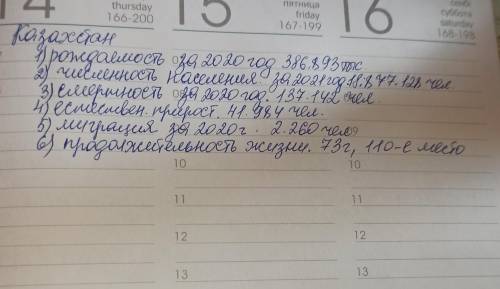 14 thursday 166-200
15 пятница friday 167-199
16 суббота saturday 168-198
Казахстан
1) рождаемость за 2020 год 386.893 тыс
2) численность населения за 2021 год 18.877.128 чел.
3) смертность за 2020 год. 137.142 чел.
4) естествен. прирост. 41.984 чел.
5) миграция за 2020 г. 2.260 чел
6) продолжительность жизни. 73 г, 110-е место
10 10 10
11 11 11
12 12 12
13 13 13